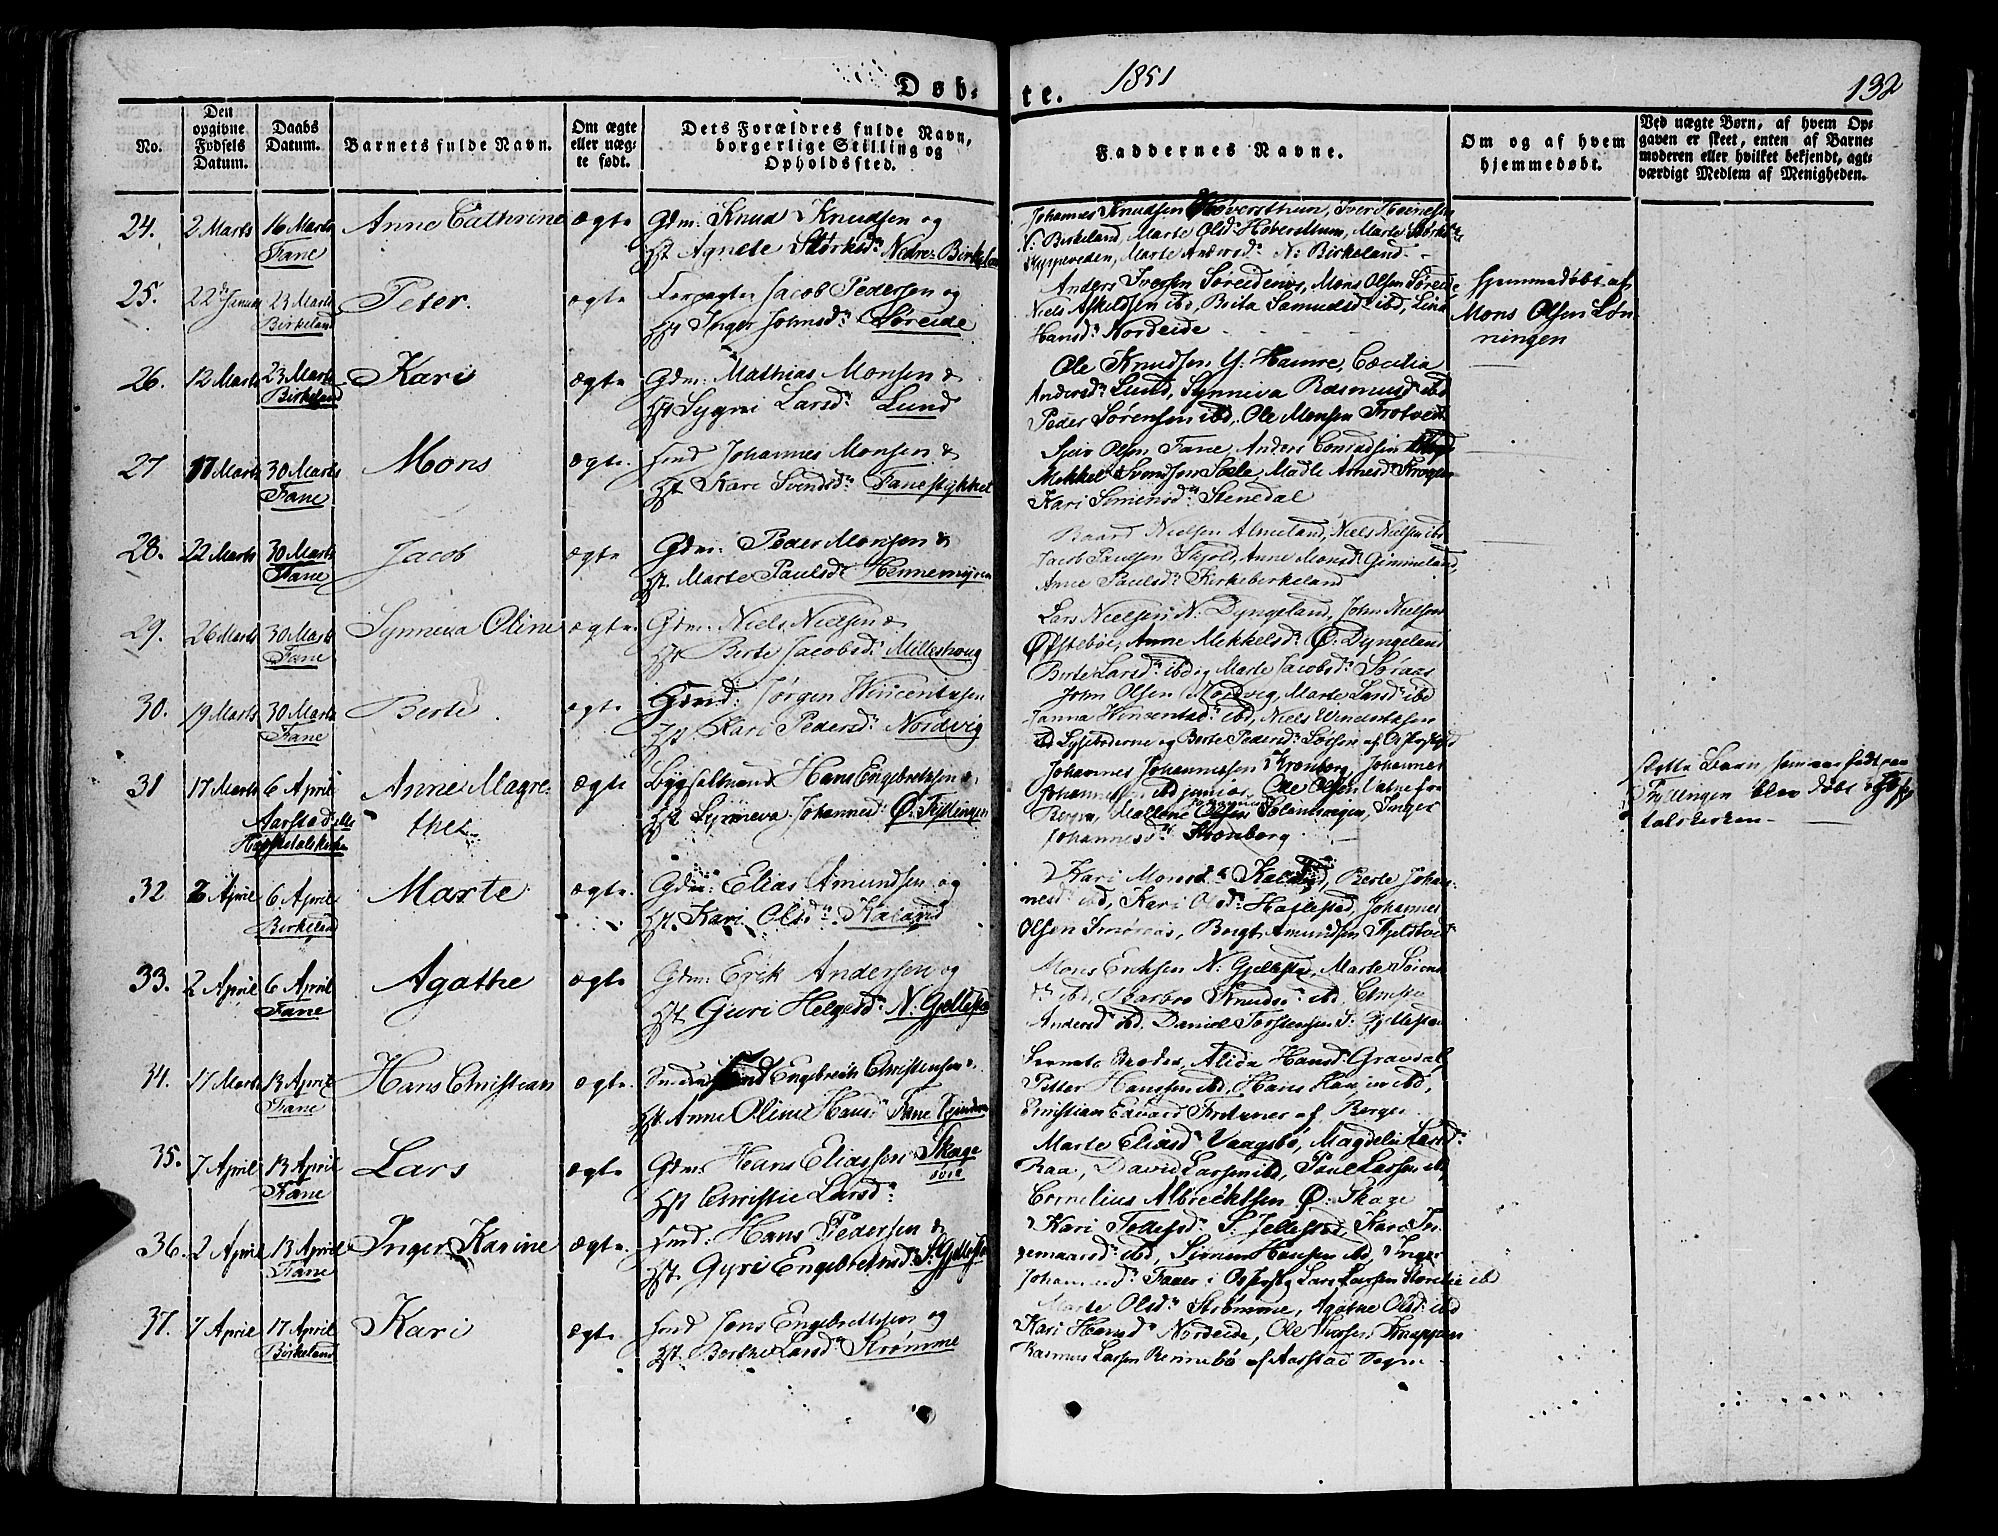 Døb- te. 1851 132
No.
Den opgivne Fødsels Datum.
Daabs Datum.
Barnets fulde Navn.
Om ægte eller uægte født.
Dets Forældres fulde Navn, borgerlige Stilling og Opholdssted.
Faddernes Navne.
Om og af hvem hjemmedøbt.
Ved uægte Børn, af hvem Opgaven er skeet, enten af Barnemoderen eller hvilket bekjendt, agtværdigt Medlem af Menigheden.
24. 2 Marts 16 Marts Fane Anne Cathrine ægte
Gdm: Knud Knudsen og
Hst Agnete Størksd: Nedre-Birkeland
Johannes Knudsen Høversthun, Iver
N: Birkeland, Marte Olsd: Høversthun, Marte
Marte Andersd: N: Birkeland.
25. 22 Januar 23 Marts Birkeland Peter. ægte
Forpagter Jacob Pedersen og
Hst Inger Johnsd: Søreide
Anders Iversen Søreidenes, Mons Olsen Søreide
Niels Askildsen ibd, Brita Samuelsd: ibd,
Hansd: Nordeide
Hjemmedøbt af
Mons Olsen Løn-
ningen
26. 12 Marts 23 Marts Birkeland Kari ægte
Gdm: Mathias Monsen &
Hst Sygni Larsd: Lund
Ole Knudsen Y: Haunre, Cæcilia
Andersd: Lund, Synneva Rasmusd: ibd
Peder Sørensen ibd, Ole Monsen Trotveit
27 17 Marts 30 Marts Fane Mons ægte.
Hmd Johannes Monsen &
Hst Kari Svendsd: Fanestykket
Sjur Olsen Fane, Anders Conradsen
Mekkel Svendsen Sæle, Madle Arnesd:
Kari Simensd: Stenedal
28. 22 Marts 30 Marts Fane Jacob ægte
Gdm: Peder Monsen &
Hst. Marte Paulsd: Hennemyren
Baard Nielsen Almeland, Niels Nielsen ibd
Jacob Paulsen Skjold, Anne Monsd: Gimmeland,
Anne Paulsd: Kirkebirkeland
29. 26 Marts 30 Marts Fane Synneva Oline ægte.
Gdm: Niels Nielsen &
Hst Berte Jacobsd: Milleshoug
Lars Nielsen N: Dyngeland, John Nielsen
Øfstebøe, Anne Mekkelsd: Ø: Dyngeland
Berte Larsd: ibd og Marte Jacobsd: Søraas
30. 19 Marts 30 Marts Fane Berte ægte
Hmd: Jørgen Wincentsen
Hst Kari Pedersd: Nordvig
John Olsen Nordvig, Marte Larsd: ibd
Janna Winsentsd: ibd, Niels Winsentsen
og Berte Pedersd:
31 17 Marts 6 April Aarstad Hospitalskirken Anne Magre- ægte
thes
Bygselmand Hans Engebretsen &
Hst Synneva Johannesd: Ø. Fyllingen
Johannes Johannessen Kronborg, Johannes
ibd junior, Ole Olsen
Inger
Johannesd: Kronborg
Dette Barn, som var født paa
Fyllingen blev døbt i Hospi-
talskirken
32 2 April 6 April Birkeland Marte ægte.
Gdm: Elias Amundsen og
Hst. Kari Olsd: Kaland
Kari Monsd: Kaland, Berte Johan-
nesd: ibd, Kari Olsd: Hatlestad, Johannes
Olsen Smøraas, Bergt Amundsen
33. 2 April 6 April Fane Agathe ægte
Gdm: Erik Andersen og
Hst Guri Helgesd: N. Gjellestad
Mons Eriksen N: Gjellestad, Marte
ibd, Barbro Knudsd: ibd, Christie
Andersd: ibd. Daniel Torstensen S: Gjellestad
34. 17 Marts 13 April Fane Hans Christian ægte.
Engebreth Christensen &
Hst Anne Oline Hansd:
Alida Hansd: Gravdal,
Petter Hanssen ibd, Hans ibd,
Christian Eduard af Bergen
35. 7 April 13 April Fane Lars ægte
Gdm: Hans Eliassen Skage
øvre
Hst Christie Larsd:
Marte Eliasd: Vaagsbø, Magdeli Larsd:
Raa, David Larsen ibd, Paul Larsen ibd,
Cornelius Albrechtsen Ø: Skage
36. 2 April 13 April Fane Inger Karine ægte.
Hmd: Hans Pedersen &
Hst. Gyri Engebretsd: S: Gjellestad
Kari S: Jellestad, Kari In-
gemaarsd: ibd, Simen Hansen ibd, Inger
Lars Larsen
37. 7 April 17 April Birkeland Kari ægte
Hmd Jens Engebretsen og
Hst. Berthe Larsd: Strømme
Marte Olsd: Strømme, Agathe Olsd: ibd
Kari Hansd: Nordeide, Ole Knappen
Rasmus Larsen Rennebø af Aarstad Sogn